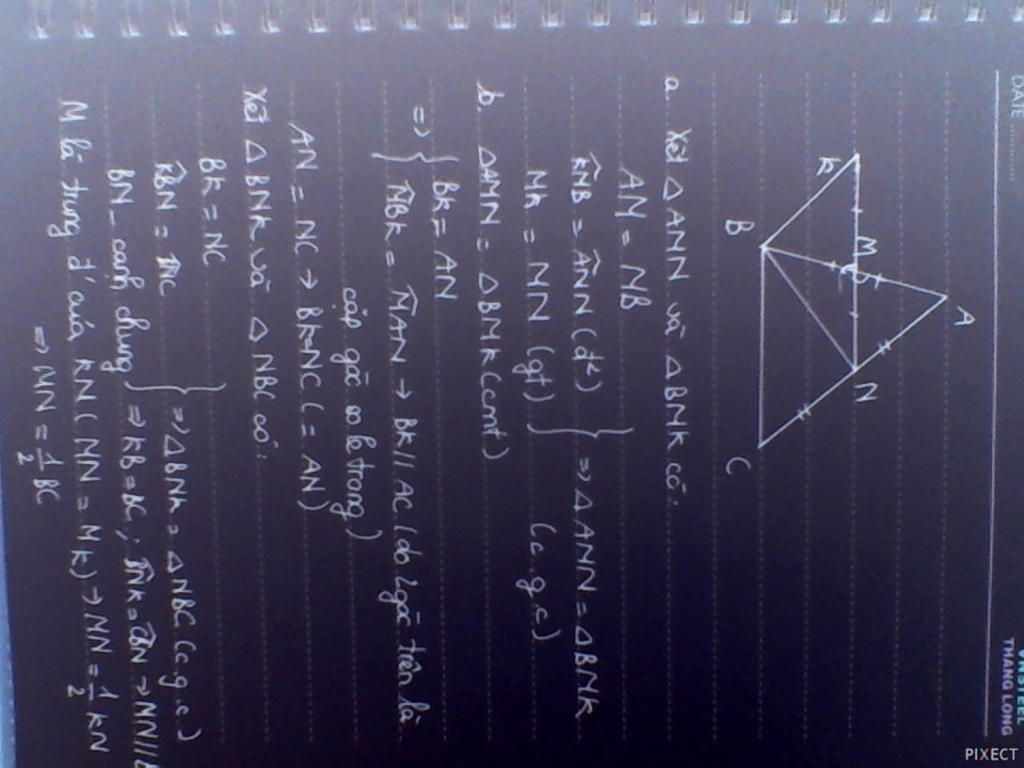 DATE
VASTEEL
THANG LONG
A
M
N
K
B
C
a. Xét Δ AMN và Δ BMK có.
AM = MB
KMB = AMN (đ²)
MK = MN (gt)
=> Δ AMN = Δ BMK
(c.g.c)
b. ΔAMN = ΔBMK (cmt)
=> BK = AN
MBK = MAN → BK // AC (do 2 góc trên là
cặp góc so le trong)
AN = NC → BK = NC (= AN)
Xét Δ BNK và Δ NBC có.
BK = NC
KBN = BNC
BN _ cạnh chung
=> ΔBNK = ΔNBC (c.g.c)
=> KB = BC ; BNK = CBN → MN // B
M là trung đ' của KN (MN = MK) → MN = 1/2 KN
=> MN = 1/2 BC
PIXECT